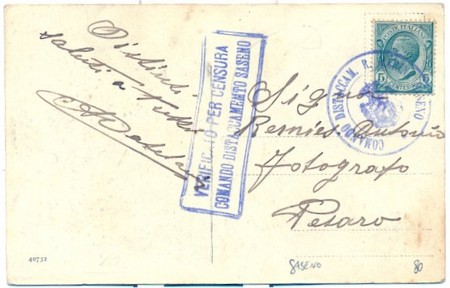 Distinti
saluti a tutti
VERIFICATO PER CENSURA
COMANDO DISTACCAMENTO SASENO
POSTE ITALIANE
5 5
COMANDO DISTACCAM. R.
SENO
Signor
Fotografo
Pesaro
40731
SASENO
80